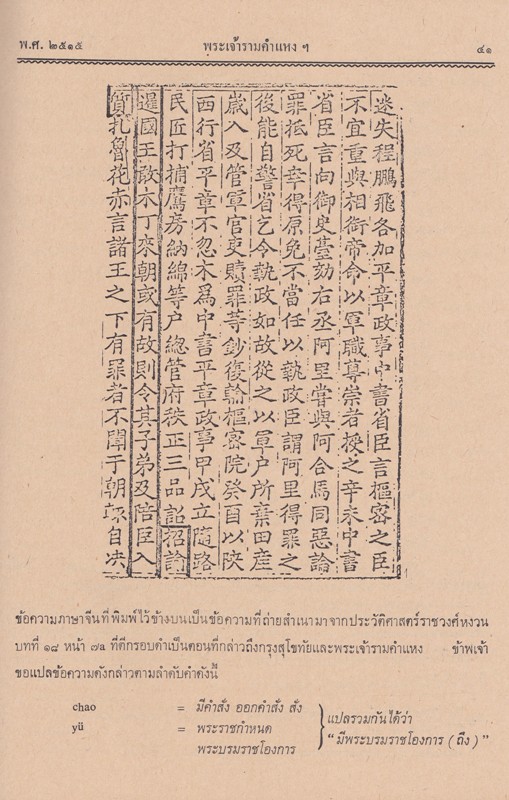 พ.ศ. ๒๕๑๕ พระเจ้ารามคำแหง ฯ ๔๑
迷失程鵬飛各加平章政事中書省臣言樞密之臣
不宜重與相銜帝命以軍職尊崇者授之辛未中書
省臣言向御史臺劾右丞阿里嘗與阿合馬同惡論
罪抵死幸得原免不當任以執政臣謂阿里得罪之
後能自警省乞令執政如故從之以軍户所棄田産
歲入及管軍官吏贖罪等鈔復輸樞密院癸酉以陝
西行省平章不忽木爲中書平章政事甲戌立隨路
民匠打捕鷹房納綿等户總管府秩正三品詔招諭
暹國王敢木丁來朝或有故則令其子弟及陪臣入
質扎魯花赤言諸王之下有罪者不聞于朝輒自决
ข้อความภาษาจีนที่พิมพ์ไว้ข้างบนเป็นข้อความที่ถ่ายสำเนามาจากประวัติศาสตร์ราชวงศ์หงวน
บทที่ ๑๘ หน้า ๗a ที่ตีกรอบดำเป็นตอนที่กล่าวถึงกรุงสุโขทัยและพระเจ้ารามคำแหง ข้าพเจ้า
ขอแปลข้อความดังกล่าวตามลำดับคำดังนี้
chao = มีคำสั่ง ออกคำสั่ง สั่ง
yü = พระราชกำหนด
พระบรมราชโองการ
แปลรวมกันได้ว่า
“ มีพระบรมราชโองการ ( ถึง ) ”